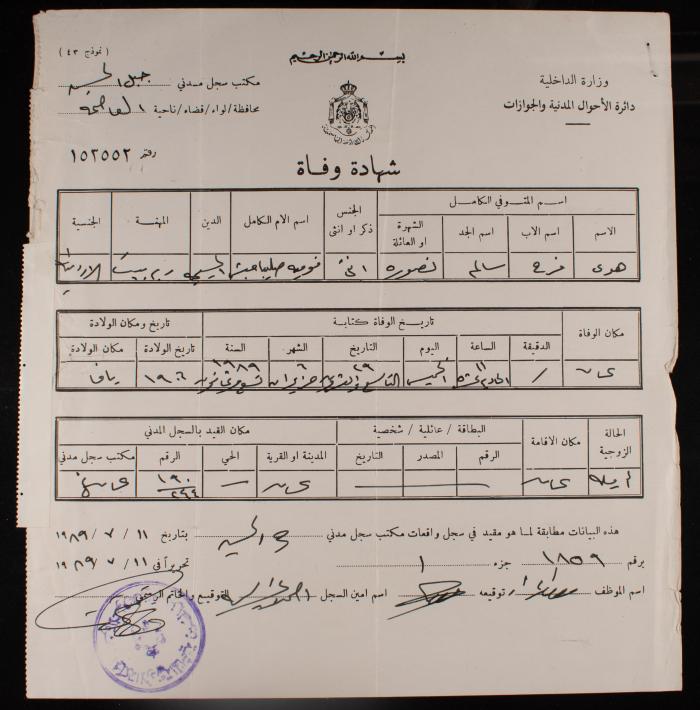 بسم الله الرحمن الرحيم
( نموذج ٤٣ )
وزارة الداخلية
دائرة الأحوال المدنية والجوازات
مكتب سجل مدني جبل الحسين
محافظة/لواء/قضاء/ناحية العاصمة
رقم ١٥٢٥٥٢
شهادة وفاة
اسم المتوفي الكامل
الاسم اسم الاب اسم الجد الشهرة او العائلة الجنس ذكر او انثى اسم الام الكامل الدين المهنة الجنسية
هدى فرح سالم انثى المسيحي ربة بيت الاردنية
مكان الوفاة تاريخ الوفاة كتابة تاريخ ومكان الولادة
الدقيقة الساعة اليوم التاريخ الشهر السنة تاريخ الولادة مكان الولادة
١١ ٢٩ ٦ ١٩٨٩
عمان / الحادية عشرة الخميس التاسع وعشرين حزيران يافا
الحالة الزوجية مكان الاقامة البطاقة / عائلية / شخصية مكان القيد بالسجل المدني
الرقم المصدر التاريخ المدينة او القرية الحي الرقم مكتب سجل مدني
ارملة عمان عمان — ١٩٠ عمان
هذه البيانات مطابقة لما هو مقيد في سجل واقعات مكتب سجل مدني الحسين بتاريخ ١١ / ٧ / ١٩٨٩
برقم ١٨٥٩ جزء ١ تحريراً في ١١ / ٧ / ١٩٨٩
اسم الموظف توقيعه اسم امين السجل التوقيع والخاتم الرسمي